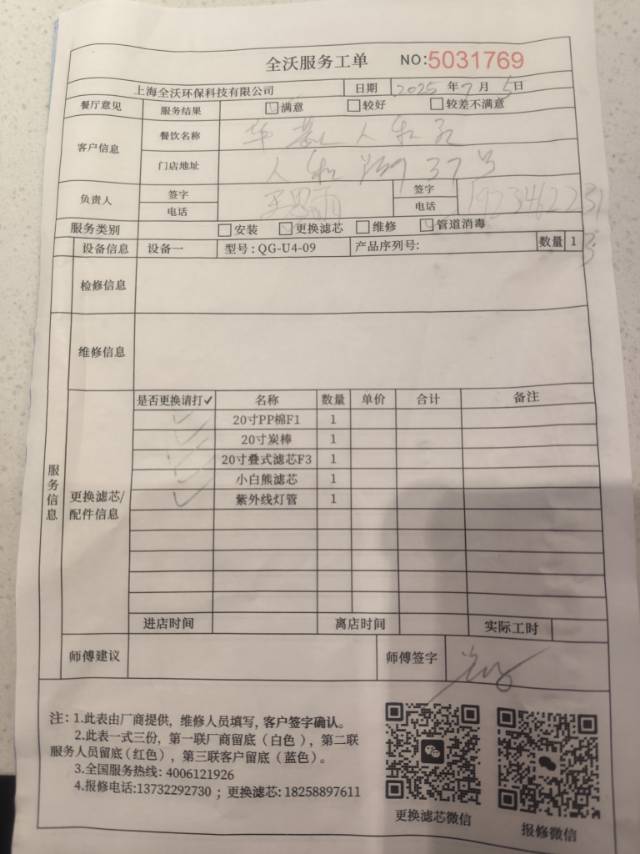 全沃服务工单 NO:5031769
上海全沃环保科技有限公司 日期 2025 年 7 月 5 日
餐厅意见 服务结果 满意 较好 较差不满意
客户信息 餐饮名称 华 人和
门店地址 人和 37号
负责人 签字 雨 签字
电话 电话
服务类别 安装 更换滤芯 维修 管道消毒
设备信息 设备一 型号: QG-U4-09 产品序列号: 数量 1
检修信息
维修信息
服务信息
更换滤芯/配件信息
是否更换请打✓ 名称 数量 单价 合计 备注
✓ 20寸PP棉F1 1
✓ 20寸炭棒 1
✓ 20寸叠式滤芯F3 1
✓ 小白熊滤芯 1
✓ 紫外线灯管 1
进店时间 离店时间 实际工时
师傅建议 师傅签字
注: 1.此表由厂商提供，维修人员填写, 客户签字确认。
2.此表一式三份，第一联厂商留底（白色），第二联
服务人员留底(红色），第三联客户留底（蓝色）。
3.全国服务热线: 4006121926
4.报修电话:13732292730 ; 更换滤芯: 18258897611
更换滤芯微信 报修微信